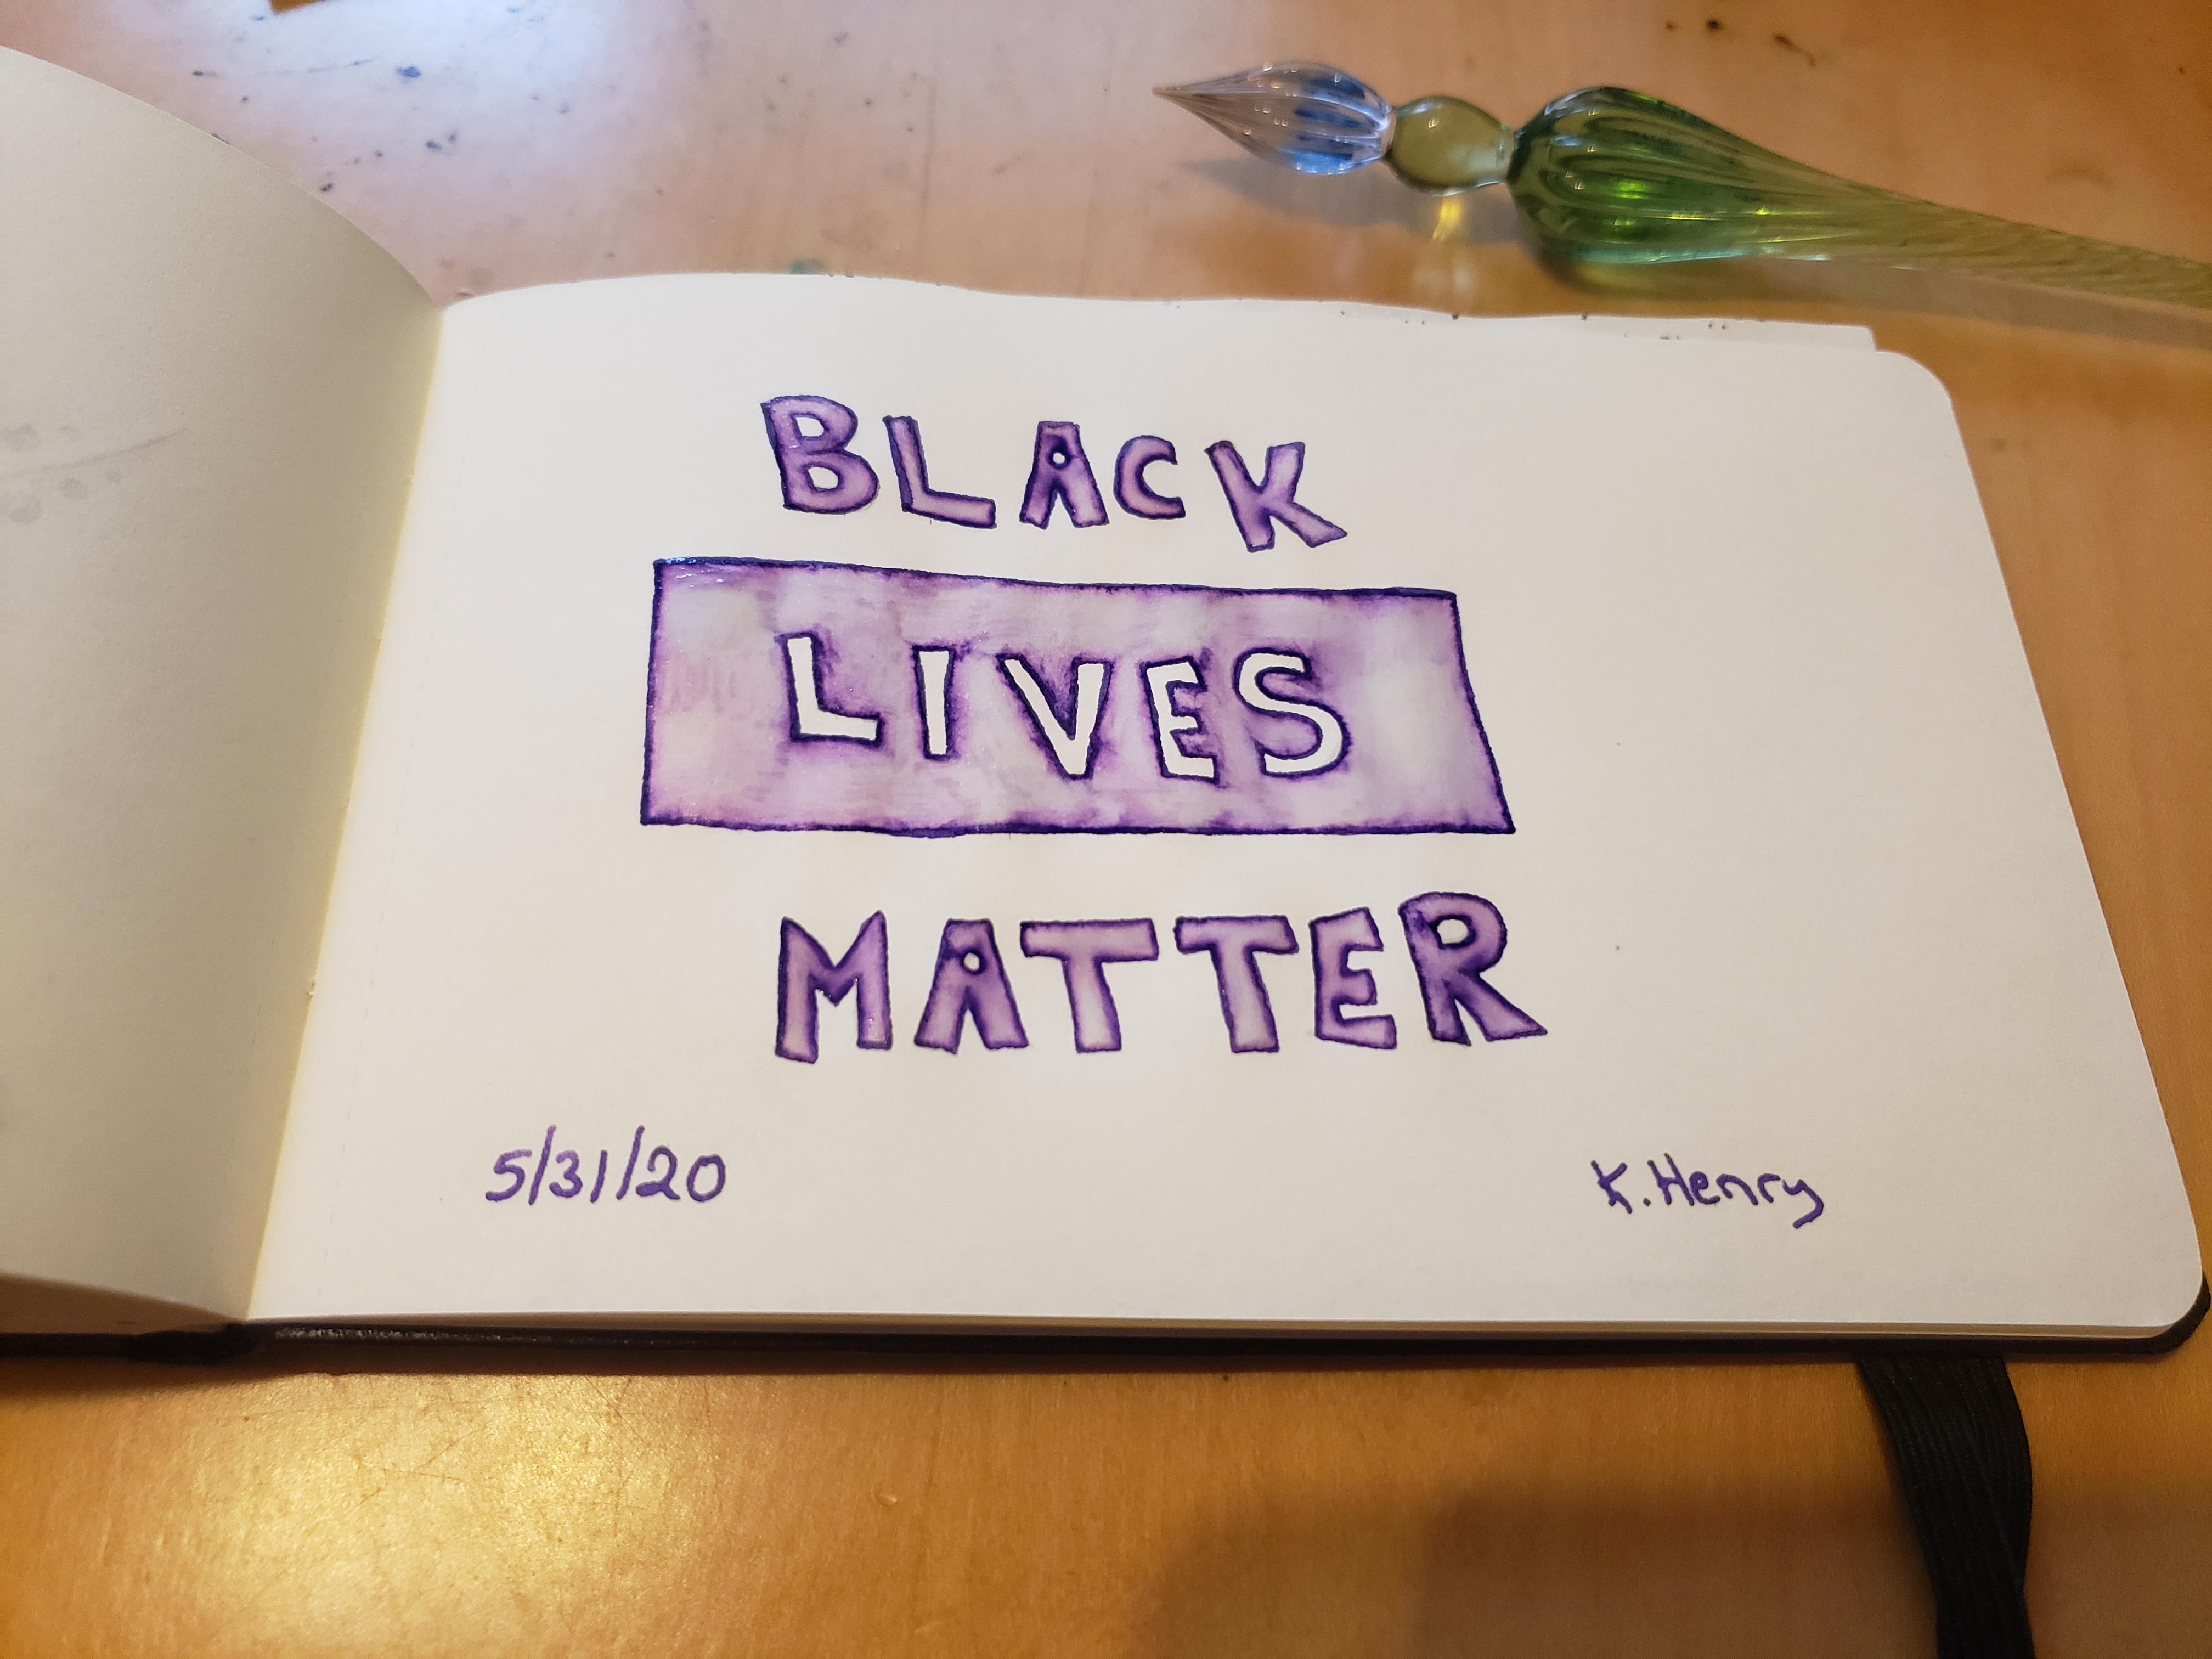 BLACK
LIVES
MATTER
5/31/20 K.Henry